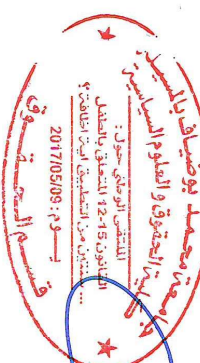 جامعة محمد بوضياف بالمسيلة
كلية الحقوق والعلوم السياسية
الملتقى الوطني حول:
القانون 12-15 المتعلق بالطفل
من التطبيق
يـــوم: 2017/05/09
قسم الحقوق